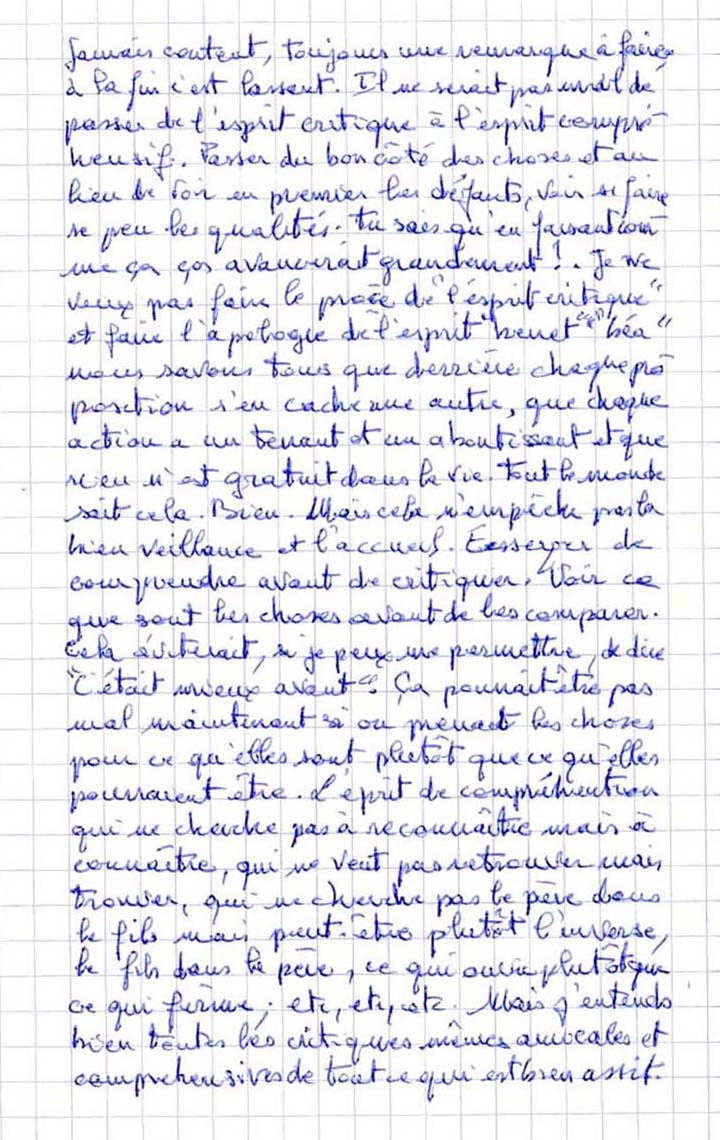 Jamais content, toujours une remarque à faire
à la fin c'est lassant. Il ne serait pas mal de
passer de l'esprit critique à l'esprit compré-
hensif. Passer du bon côté des choses et au
lieu de voir en premier les défauts, voir si faire
se peu les qualités. Tu sais qu'en faisant com-
me ça ços avancerait grandement !. Je ne
veux pas faire le procè de "l'ésprit critique"
et faire l'apologie de l'esprit "benet" "béa"
nous savons tous que derrière chaque pro
position s'en cache une autre, que chaque
action a un tenant et un aboutissant et que
rien n'est gratuit dans la vie. Tout le monde
sait cela. Bien. Mais cela n'empêche pas la
bien veillance et l'accueil. Eesseyer de
comprendre avant de critiquer. Voir ce
que sont les choses avant de les comparer.
Cela éviterait, si je peux me permettre, de dire
"C'était mieux avant". Ça pourrait être pas
mal maintenant si on prenait les choses
pour ce qu'elles sont plutôt que ce qu'elles
pourraient être. L'éprit de compréhention
qui ne cherche pas à reconnaître mais à
connaître, qui ne veut pas retrouver mais
trouver, qui ne cherche pas le père dans
le fils mais peut-être plutôt l'inverse,
le fils dans le père, ce qui ouvre plutôt que
ce qui ferme; etc, etc, etc. Mais j'entends
bien toutes les critiques mêmes amicales et
comprehensives de tout ce qui est bien assit.